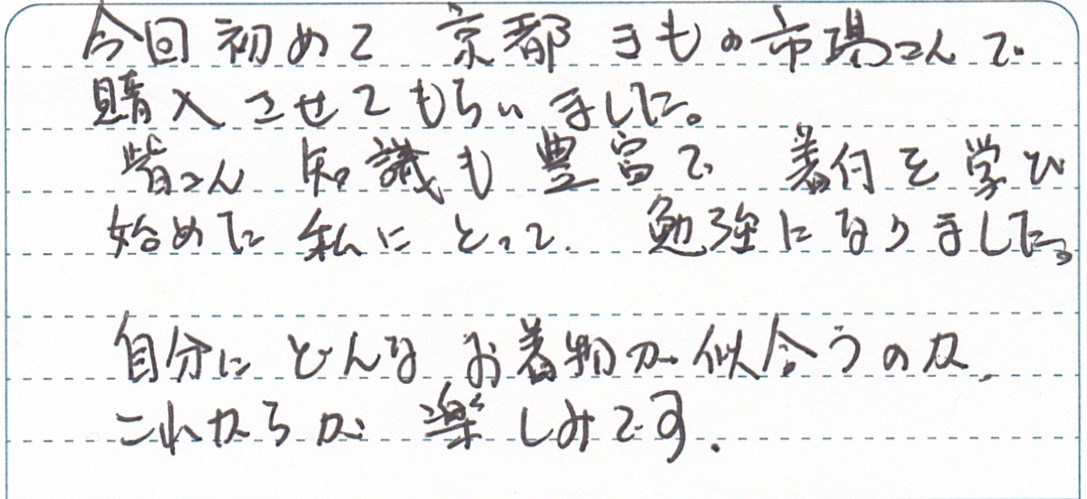 今回初めて京都きもの市場さんで
購入させてもらいました。
皆さん知識も豊富で着付を学び
始めた私にとって勉強になりました。
自分にどんなお着物が似合うのか、
これからが楽しみです。